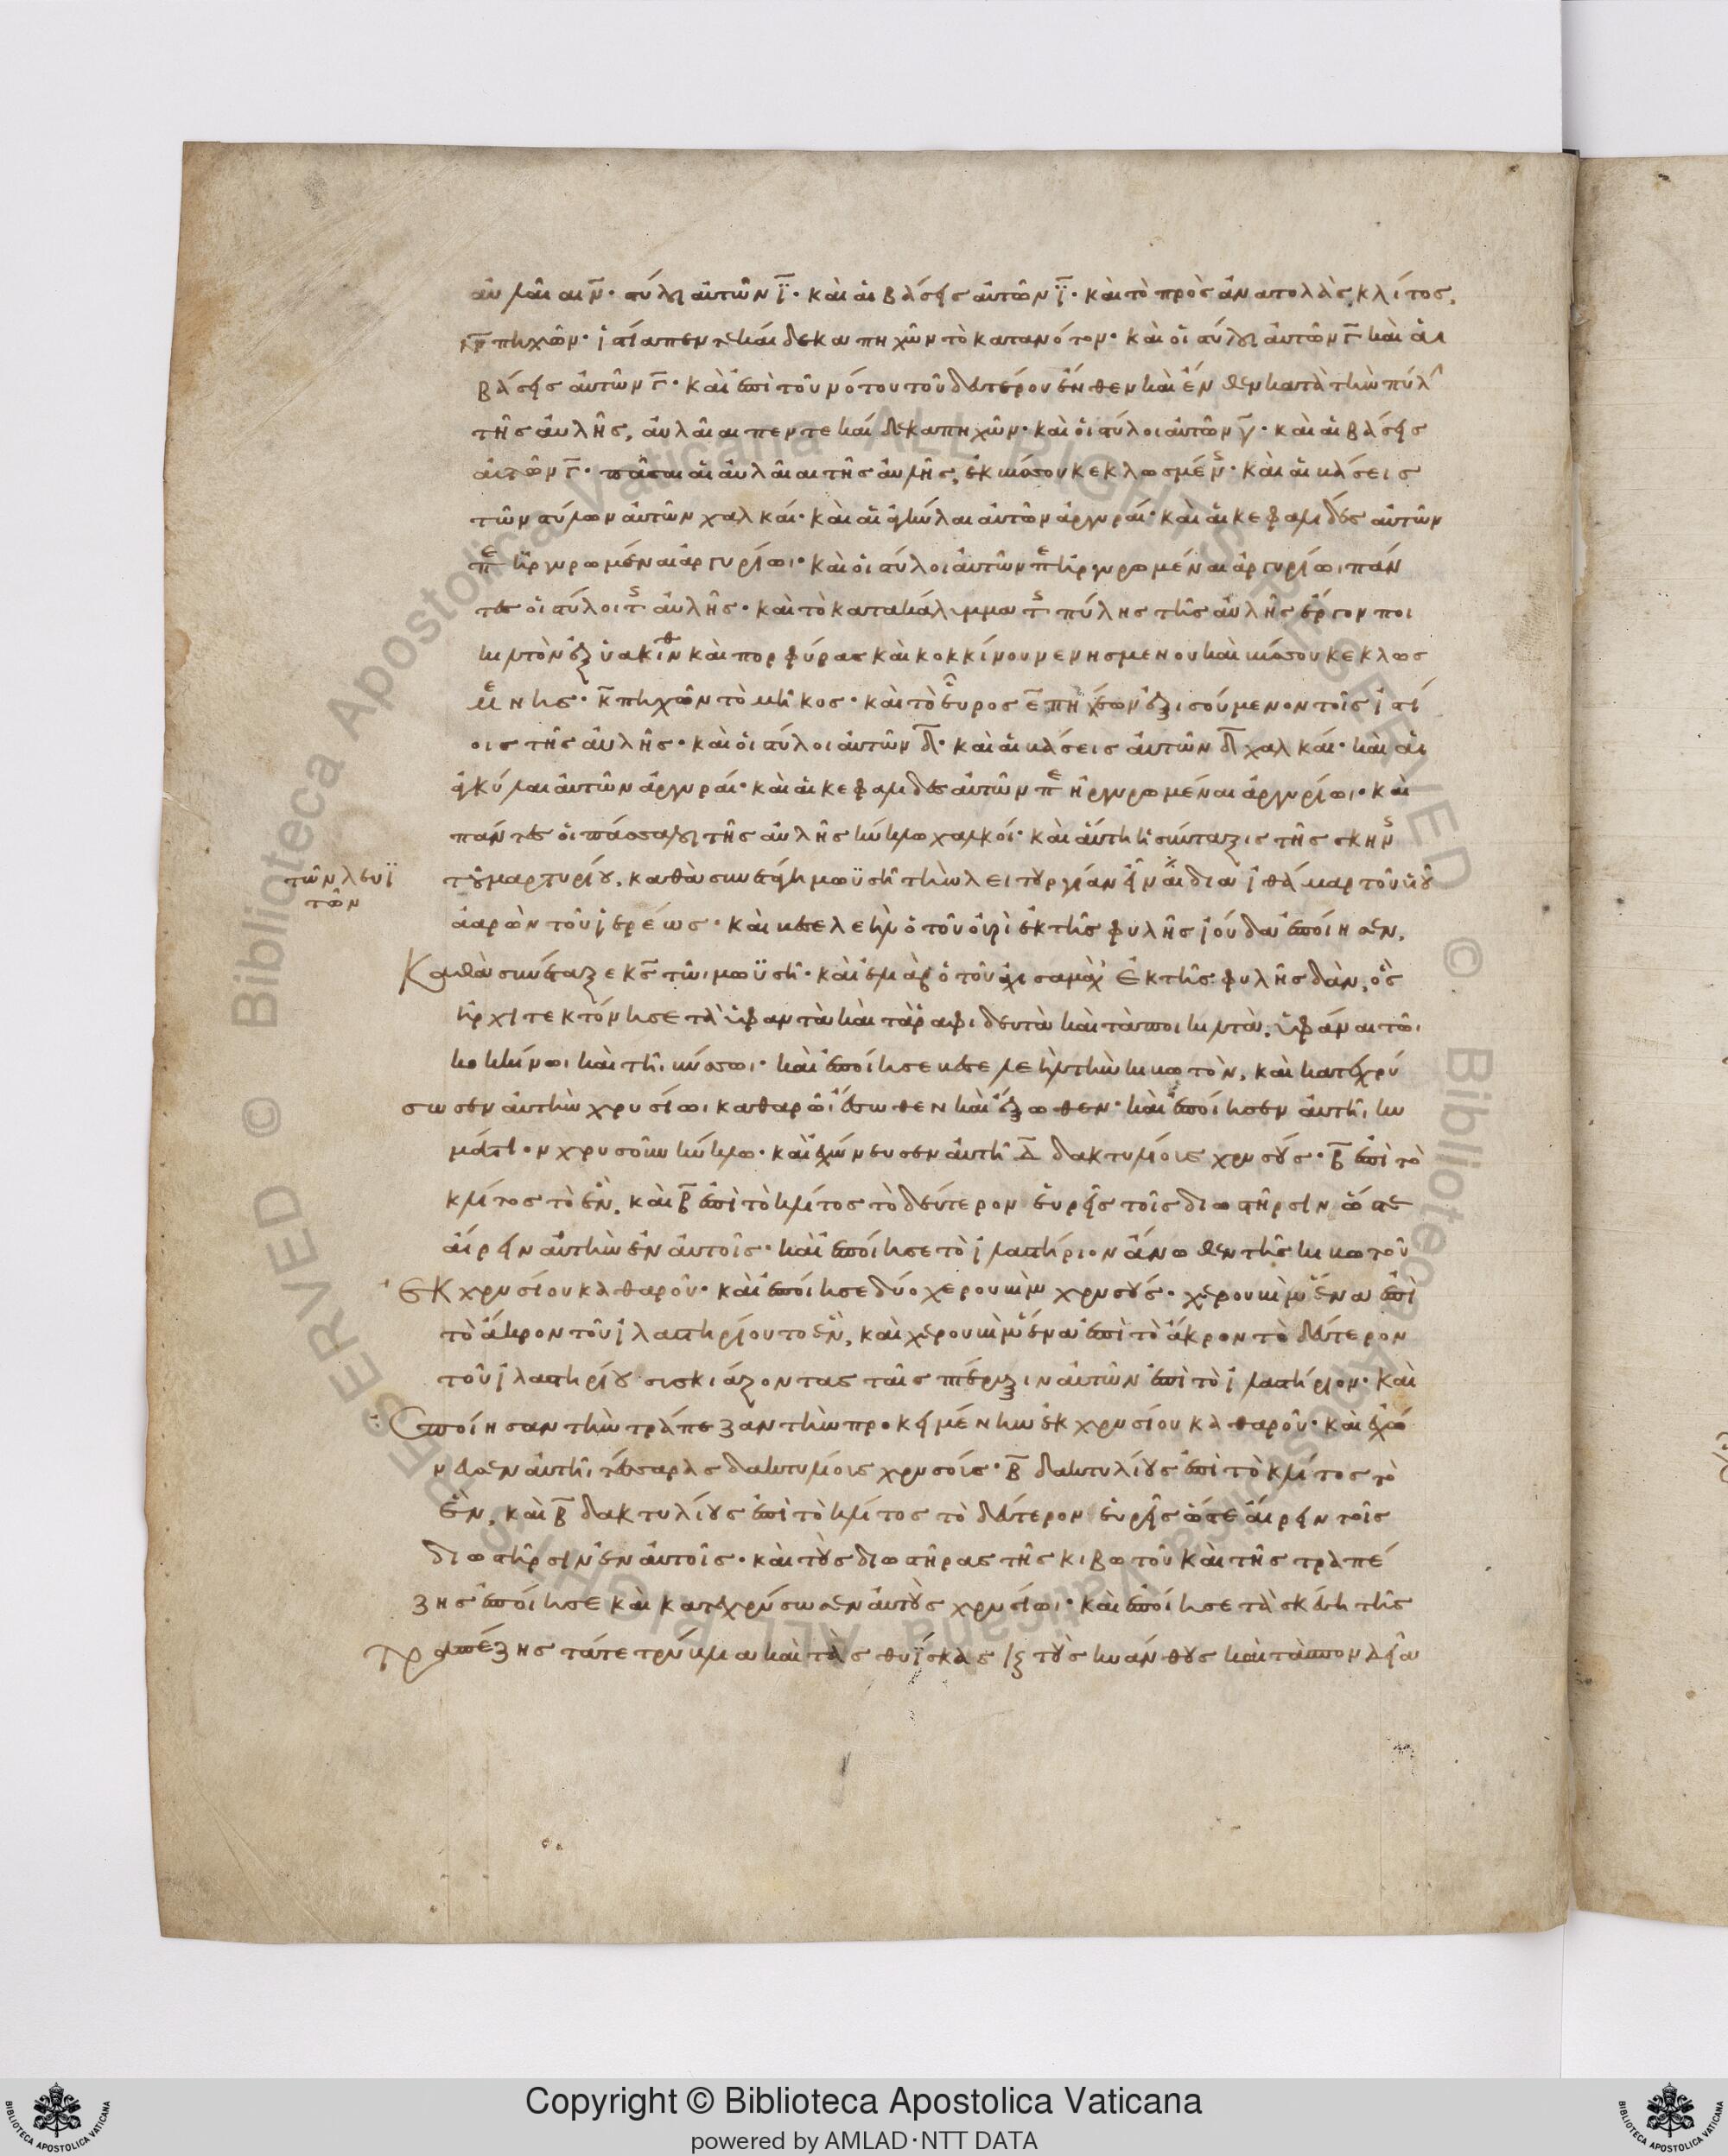 αὐλαῖαι ν̅· στύλοι αὐτῶν ϊ̅· καὶ αἱ βάσεις αὐτῶν ϊ̅· καὶ τὸ πρὸς ἀνατολὰς κλίτος,
ν̅ πηχῶν· ἱστία πεντεκαίδεκα πηχῶν τὸ κατανότον· καὶ οἱ στύλοι αὐτῶν γ̅ καὶ αἱ
βάσεις αὐτῶν γ̅· καὶ ἐπὶ τοῦ νότου τοῦ δευτέρου ἔνθεν καὶ ἔνθεν κατὰ τὴν πύλ
τῆς αὐλῆς, αὐλαῖαι πεντεκαίδεκα πηχῶν· καὶ οἱ στύλοι αὐτῶν γ̅· καὶ αἱ βάσεις
αὐτῶν γ̅· πᾶσαι αἱ αὐλαῖαι τῆς αὐλῆς, ἐκ βύσσου κεκλωσμέν· καὶ αἱ βάσεις
τῶν στύλων αὐτῶν χαλκαῖ· καὶ αἱ ἀγκύλαι αὐτῶν ἀργυραῖ· καὶ αἱ κεφαλίδες αὐτῶν
πε ηργυρωμέναι ἀργυρίωι· καὶ οἱ στύλοι αὐτῶν πε ηργυρωμέναι ἀργυρίωι πάν
τες οἱ στύλοι τ αὐλῆς· καὶ τὸ καταπάλυμμα τ πύλης τῆς αὐλῆς ἔργον ποι
κιλτὸν ἐξ ὑακίνθ καὶ πορφύρας καὶ κοκκίνου νενησμενου καὶ βύσσου κεκλωσ
μένης· κ̅ πηχῶν τὸ μῆκος· καὶ τὸ εὖρος ε̅ πήχεων ἐξισούμενον τοῖς ἱστί
οις τῆς αὐλῆς· καὶ οἱ στύλοι αὐτῶν δ̅· καὶ αἱ βάσεις αὐτῶν δ̅ χαλκαῖ· καὶ αἱ
ἀγκύλαι αὐτῶν ἀργυραῖ· καὶ αἱ κεφαλίδες αὐτῶν πε ηργυρωμέναι ἀργυρίωι· καὶ
πάντες οἱ πάσσαλοι τῆς αὐλῆς κύκλω χαλκοῖ· καὶ αὕτη ἡ σύνταξις τῆς σκην
τῶν λευϊ
τῶν
τοῦ μαρτυρίου, καθὰ συνετάγη μωϋσῆ τὴν λειτουργίαν εἶναι δια ἰθάμαρ τοῦ υἱοῦ
ἀαρὼν τοῦ ἱερέως· καὶ βεσελεὴλ ὁ τοῦ οὐρὶ ἐκ τῆς φυλῆς ἰούδα ἐποίησεν,
Καθὰ συνέταξε κς̅ τῶι μωϋσῆ· καὶ ἐλιὰβ ὁ τοῦ ἀχισαμὰχ ἐκ τῆς φυλῆς δὰν, ὃς
ἠρχιτεκτόνησε τὰ ὑφαντὰ καὶ τὰ ῥαφιδευτὰ καὶ τὰ ποικιλτὰ, ὑφάναι τῶι
κοκκίνωι καὶ τῆι βύσσωι· καὶ ἐποίησε βεσελεὴλ τὴν κιβωτὸν, καὶ κατεχρύ
σωσεν αὐτὴν χρυσίωι καθαρῶι ἔσωθεν καὶ ἔξωθεν· καὶ ἐποίησεν αὐτῆι κυ
μάτιον χρυσοῦν κύκλω· καὶ ἐχώνευσεν αὐτῆ δ̅ δακτυλίους χρυσοῦς· β̅ ἐπὶ τὸ
κλίτος τὸ ἓν, καὶ β̅ ἐπὶ τὸ κλίτος τὸ δεύτερον εὐρεῖς τοῖς διωστῆρσιν ὥστε
αἴρειν αὐτὴν ἐν αὐτοῖς· καὶ ἐποίησε τὸ ἱλαστήριον ἄνωθεν τῆς κιβωτοῦ
ἐκ χρυσίου καθαροῦ· καὶ ἐποίησε δύο χερουβὶμ χρυσοῦς· χερουβὶμ ἕνα ἐπὶ
τὸ ἄκρον τοῦ ἱλαστηρίου το ἓν, καὶ χερουβὶμ ἕνα ἐπὶ τὸ ἄκρον τὸ δεύτερον
τοῦ ἱλαστηρίου σισκιάζοντας ταῖς πτέρυξιν αὐτῶν ἐπὶ τὸ ἱλαστήριον· Καὶ
ἐποίησαν τὴν τράπεζαν τὴν προκειμένην ἐκ χρυσίου καθαροῦ· καὶ ἐχώ
νευσεν αὐτῆι τέσσαρας δακτυλίους χρυσοῖς· β̅ δακτυλίους ἐπὶ τὸ κλίτος τὸ
ἓν, καὶ β̅ δακτυλίους ἐπὶ τὸ κλίτος τὸ δεύτερον εὐρεῖς ὥστε αἴρειν τοῖς
διωστῆρσιν ἐν αὐτοῖς· καὶ τοὺς διωστῆρας τῆς κιβωτοῦ καὶ τῆς τραπέ
ζης ἐποίησε καὶ κατεχρύσωσεν αὐτοὺς χρυσίωι· καὶ ἐποίησε τὰ σκεύη τῆς
Τραπέζης τάτε τρύβλια καὶ τὰς θυΐσκας κ τοὺς κυάθους καὶ τὰ σπονδεῖα
Copyright © Biblioteca Apostolica Vaticana
powered by AMLAD·NTT DATA